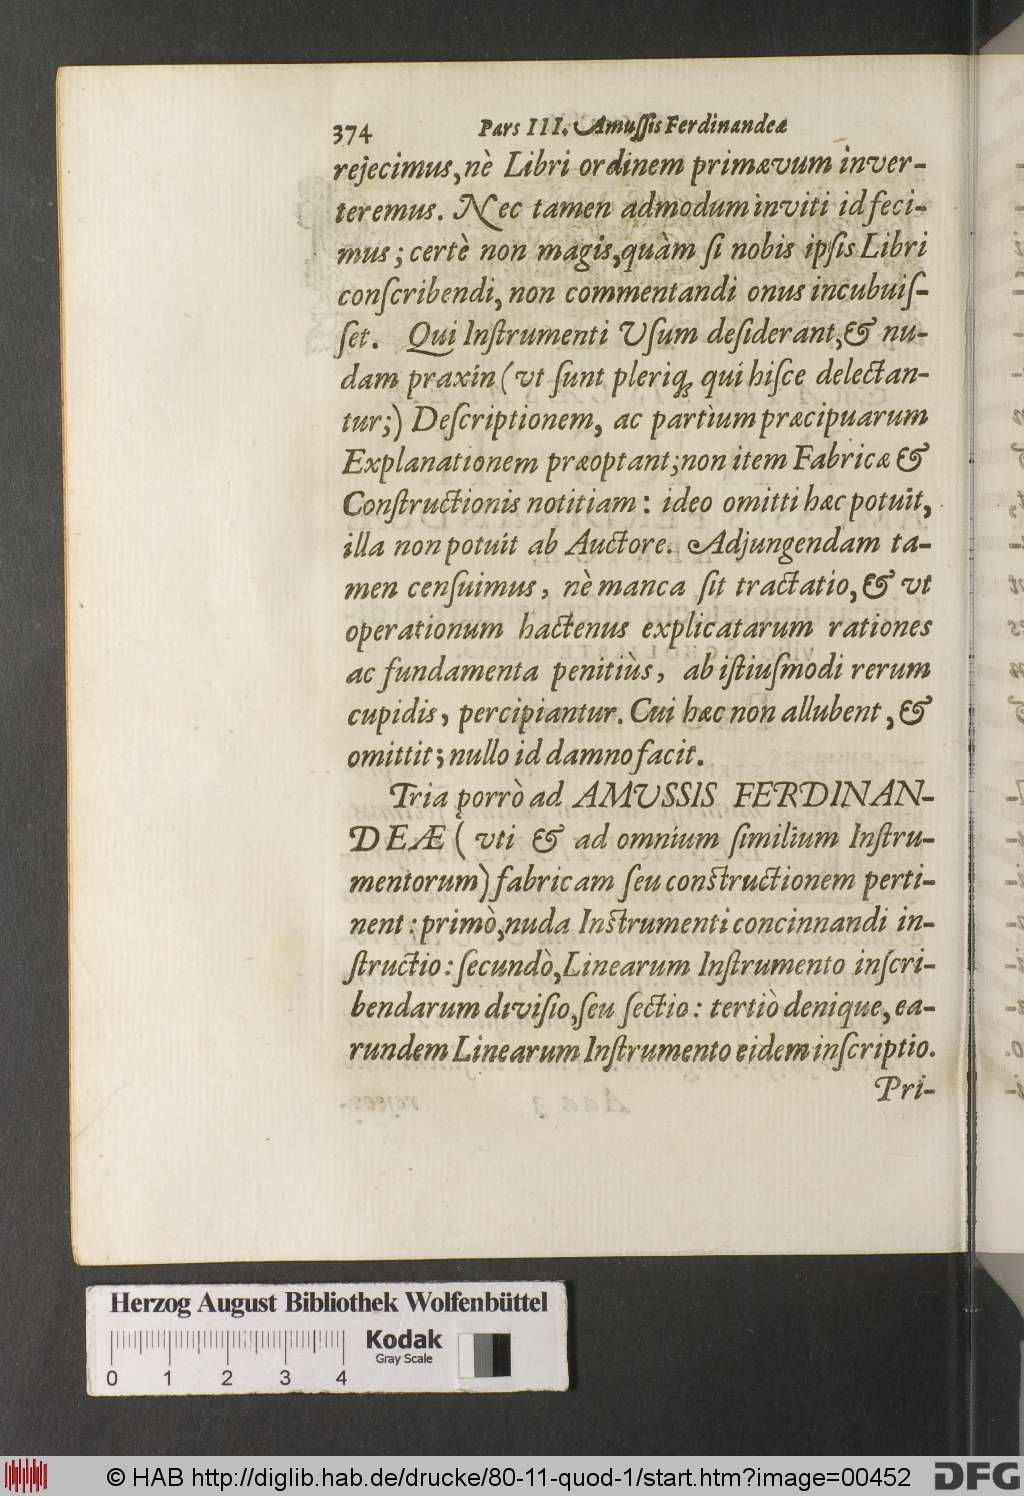 374 Pars III. Amuſſis Ferdinandeæ
rejecimus, nè Libri ordinem primævum inver-
teremus. Nec tamen admodum inviti id feci-
mus; certè non magis, quàm ſi nobis ipſis Libri
conſcribendi, non commentandi onus incubuiſ-
ſet. Qui Inſtrumenti Uſum deſiderant, & nu-
dam praxin (vt ſunt pleriq́₃ qui hiſce delectan-
tur;) Deſcriptionem, ac partium præcipuarum
Explanationem præoptant; non item Fabricæ &
Conſtructionis notitiam: ideo omitti hæc potuit,
illa non potuit ab Auctore. Adjungendam ta-
men cenſuimus, nè manca ſit tractatio, & vt
operationum hactenus explicatarum rationes
ac fundamenta penitiùs, ab iſtiuſmodi rerum
cupidis, percipiantur. Cui hæc non allubent, &
omittit; nullo id damno facit.
Tria porrò ad AMUSSIS FERDINAN-
DEÆ (vti & ad omnium ſimilium Inſtru-
mentorum) fabricam ſeu conſtructionem perti-
nent: primò, nuda Inſtrumenti concinnandi in-
ſtructio: ſecundò, Linearum Inſtrumento inſcri-
bendarum diviſio, ſeu ſectio: tertiò denique, ea-
rundem Linearum Inſtrumento eidem inſcriptio.
Pri-
Herzog August Bibliothek Wolfenbüttel
Kodak
Gray Scale
0 1 2 3 4
© HAB http://diglib.hab.de/drucke/80-11-quod-1/start.htm?image=00452 DFG